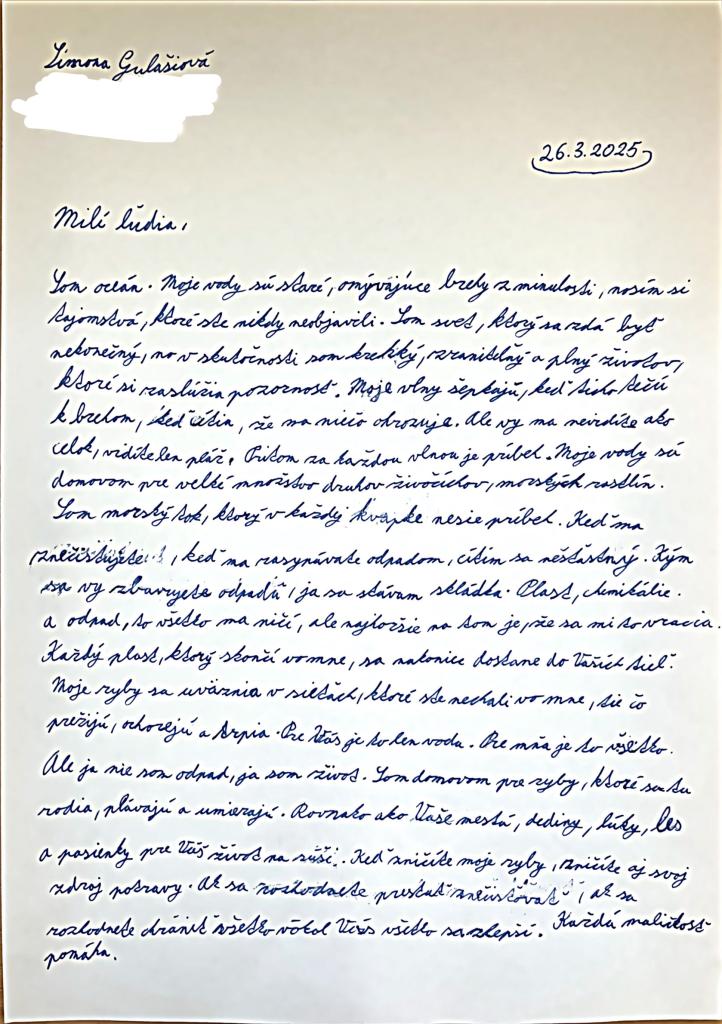 Simona Gulášiová
26.3.2025
Milí ľudia,
Som oceán. Moje vody sú staré, omývajúce brehy z minulosti, nosím si
tajomstvá, ktoré ste nikdy neobjavili. Som svet, ktorý sa zdá byť
nekonečný, no v skutočnosti som krehký, zraniteľný a plný životov,
ktoré si zaslúžia pozornosť. Moje vlny šepkajú, keď ticho tečú
k brehom, keď cítia, že ma niečo ohrozuje. Ale vy ma nevidíte ako
celok, vidíte len pláž. Pritom za každou vlnou je príbeh. Moje vody sú
domovom pre veľké množstvo druhov živočíchov, morských rastlín.
Som morský tok, ktorý v každej kvapke nesie príbeh. Keď ma
znečisťujete, keď ma zasypávate odpadom, cítim sa nešťastný. Kým
sa vy zbavujete odpadu, ja sa stávam skládka. Plast, chemikálie.
a odpad, to všetko ma ničí, ale najhoršie na tom je, že sa mi to vracia.
Každý plast, ktorý skončí vo mne, sa nakoniec dostane do Vašich tiel.
Moje ryby sa uväznia v sieťach, ktoré ste nechali vo mne, tie čo
prežijú, ochorejú a trpia. Pre Vás je to len voda. Pre mňa je to všetko.
Ale ja nie som odpad, ja som život. Som domovom pre ryby, ktoré sa tu
rodia, plávajú a umierajú. Rovnako ako Vaše mestá, dediny, lúky, les
a pasienky pre Váš život na súši. Keď zničíte moje ryby, zničíte aj svoj
zdroj potravy. Ak sa rozhodnete prestať znečisťovať, ak sa
rozhodnete chrániť všetko vôkol Vás všetko sa zlepší. Každá maličkosť
pomáha.